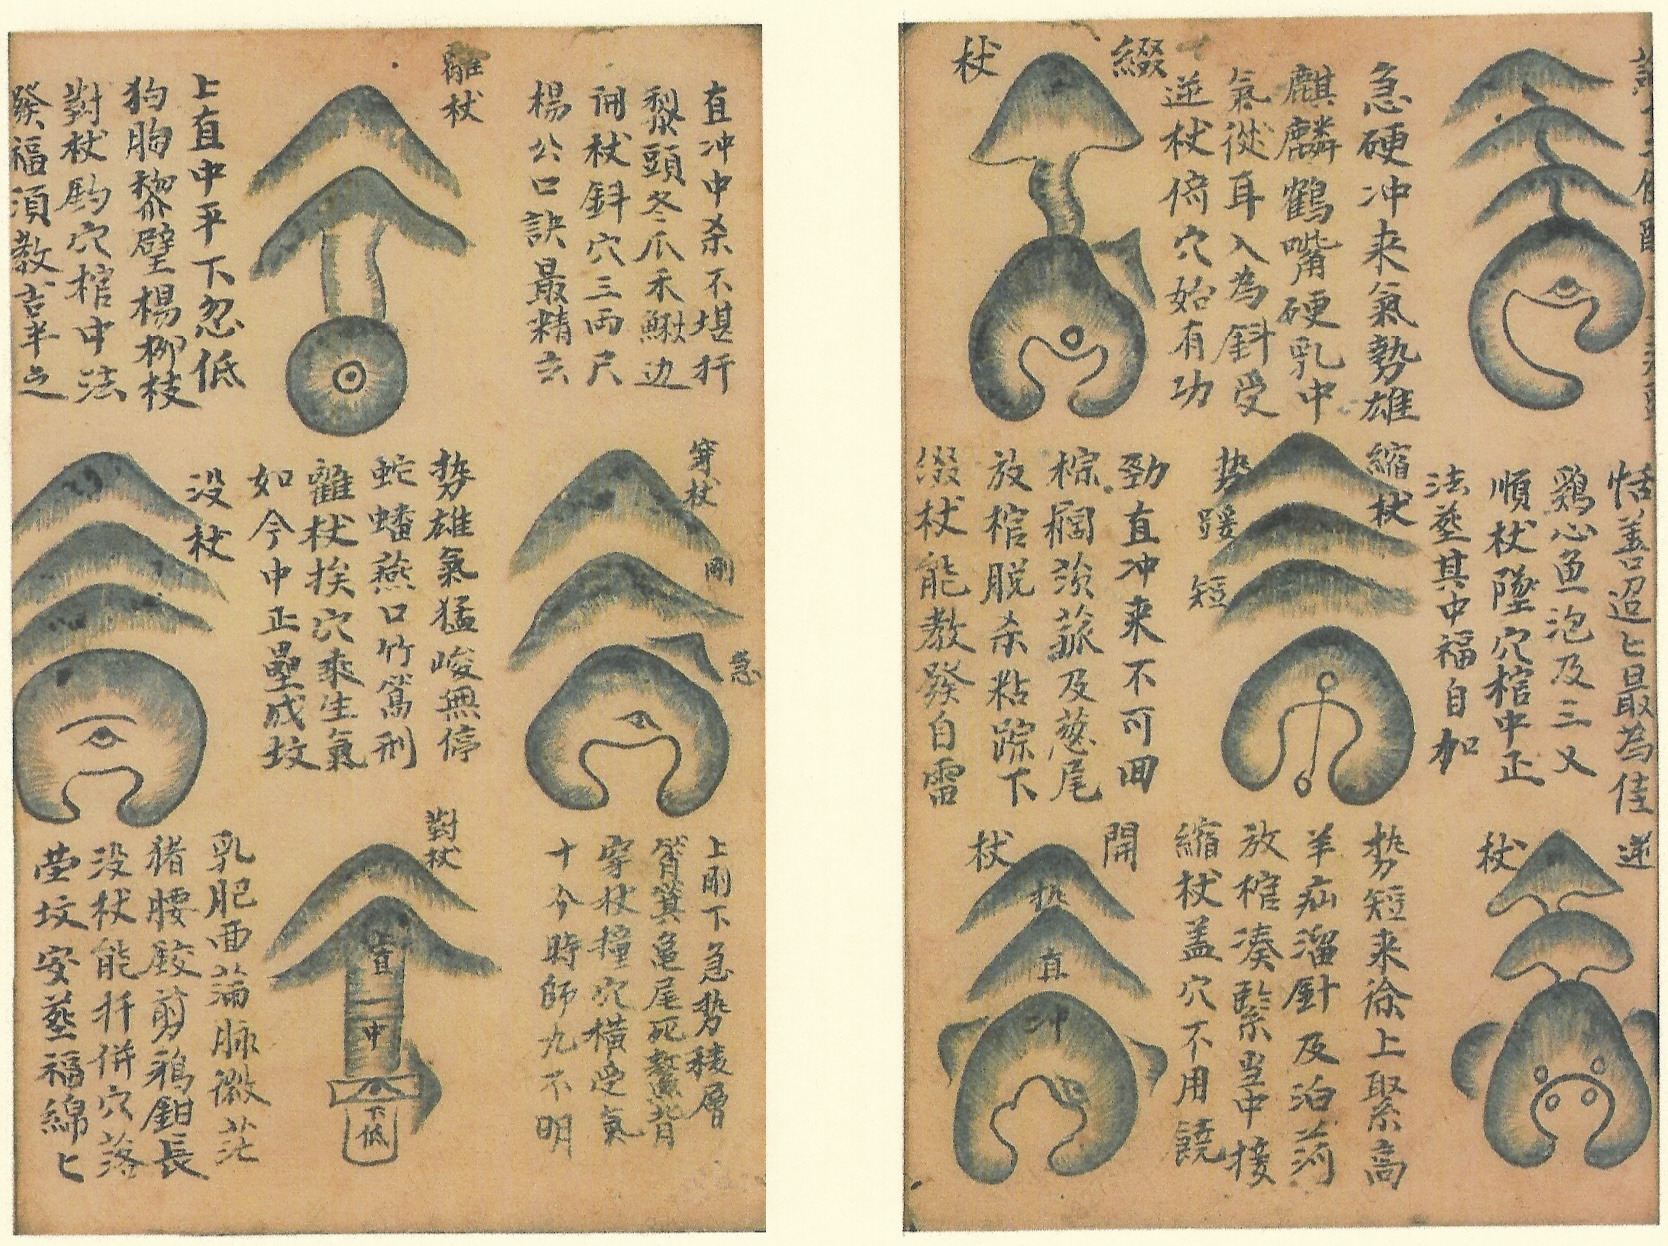 急硬冲来氣勢雄
麒麟鶴嘴硬乳中
氣從耳入為斜受
逆杖倚穴始有功
綴杖
恬善迢匕最為佳
鷄心魚泡及三叉
順杖墜穴棺中正
法葬其中福自加
縮杖
势
短
劲直冲来不可回
棕榈 菰及葱尾
放棺脱杀粘踪下
綴杖能教發自雷
逆杖
势短来徐上聚高
羊疝溜針及泊
放棺凑緊当中接
縮杖盖穴不用饒
開杖
势
直
冲
直冲中杀不堪扦
犁頭冬瓜禾鰍边
開杖斜穴三両尺
楊公口訣最精玄
離杖
上直中平下忽低
狗胸黎壁楊柳枝
對杖 穴棺中法
發福須教吉半之
穿杖
剛
急
势雄氣猛峻無停
蛇蟠燕口竹篙形
離杖挨穴乘生氣
如今中正壘成坟
没杖
上剛下急势稜層
箕亀尾死鰲背
穿杖撞穴横受氣
十今時師九不明
對杖
上直
中
下低
乳肥面 脉微茫
猪腰鉸剪鴉鉗長
没杖能扦併穴落
茔坟安葬福綿匕